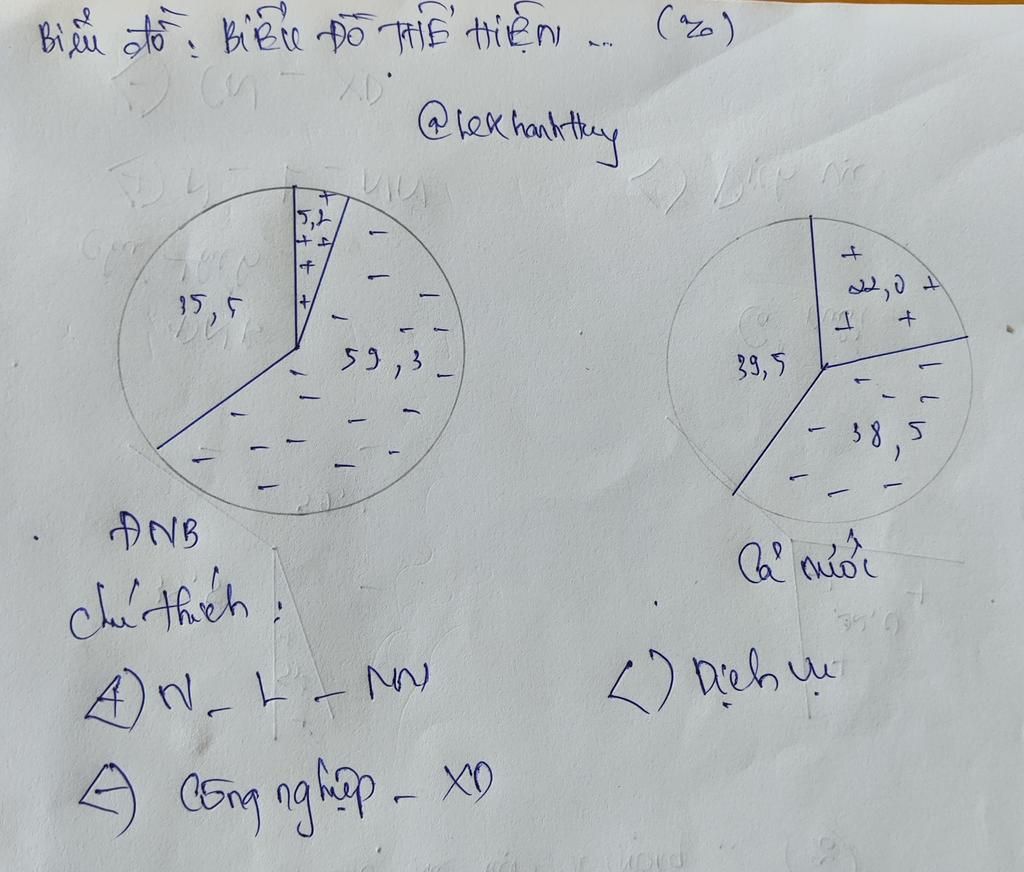 Biểu đồ: BIỂU ĐỒ THỂ HIỆN ... (%)
@Lekhanhthuy
5,2
35,5
59,3
22,0
39,5
38,5
ĐNB
Cả nước
Chú thích:
(+) N - L - NN
( ) Dịch vụ
(-) Công nghiệp - XD